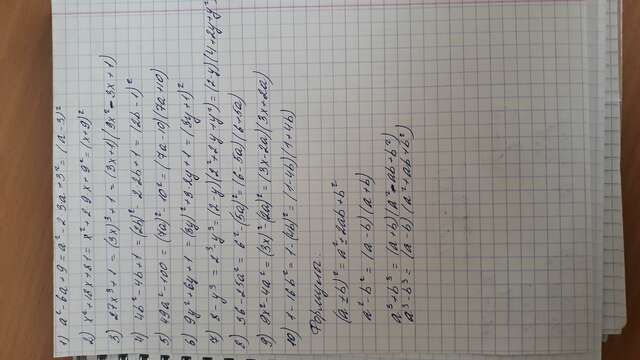 1) a² - 6a + 9 = a² - 2·3a + 3² = (a - 3)²
2) x² + 18x + 81 = x² + 2·9x + 9² = (x + 9)²
3) 27x³ + 1 = (3x)³ + 1 = (3x + 1)(9x² - 3x + 1)
4) 4b² - 4b + 1 = (2b)² - 2·2b + 1 = (2b - 1)²
5) 49a² - 100 = (7a)² - 10² = (7a - 10)(7a + 10)
6) 9y² + 6y + 1 = (3y)² + 3·2y + 1 = (3y + 1)²
7) 8 - y³ = 2³ - y³ = (2 - y)(2² + 2y + y²) = (2 - y)(4 + 2y + y²)
8) 36 - 25a² = 6² - (5a)² = (6 - 5a)(6 + 5a)
9) 9x² - 4a² = (3x)² - (2a)² = (3x - 2a)(3x + 2a)
10) 1 - 16b² = 1 - (4b)² = (1 - 4b)(1 + 4b)
Формулы:
(a ± b)² = a² ± 2ab + b²
a² - b² = (a - b)(a + b)
a³ + b³ = (a + b)(a² - ab + b²)
a³ - b³ = (a - b)(a² + ab + b²)